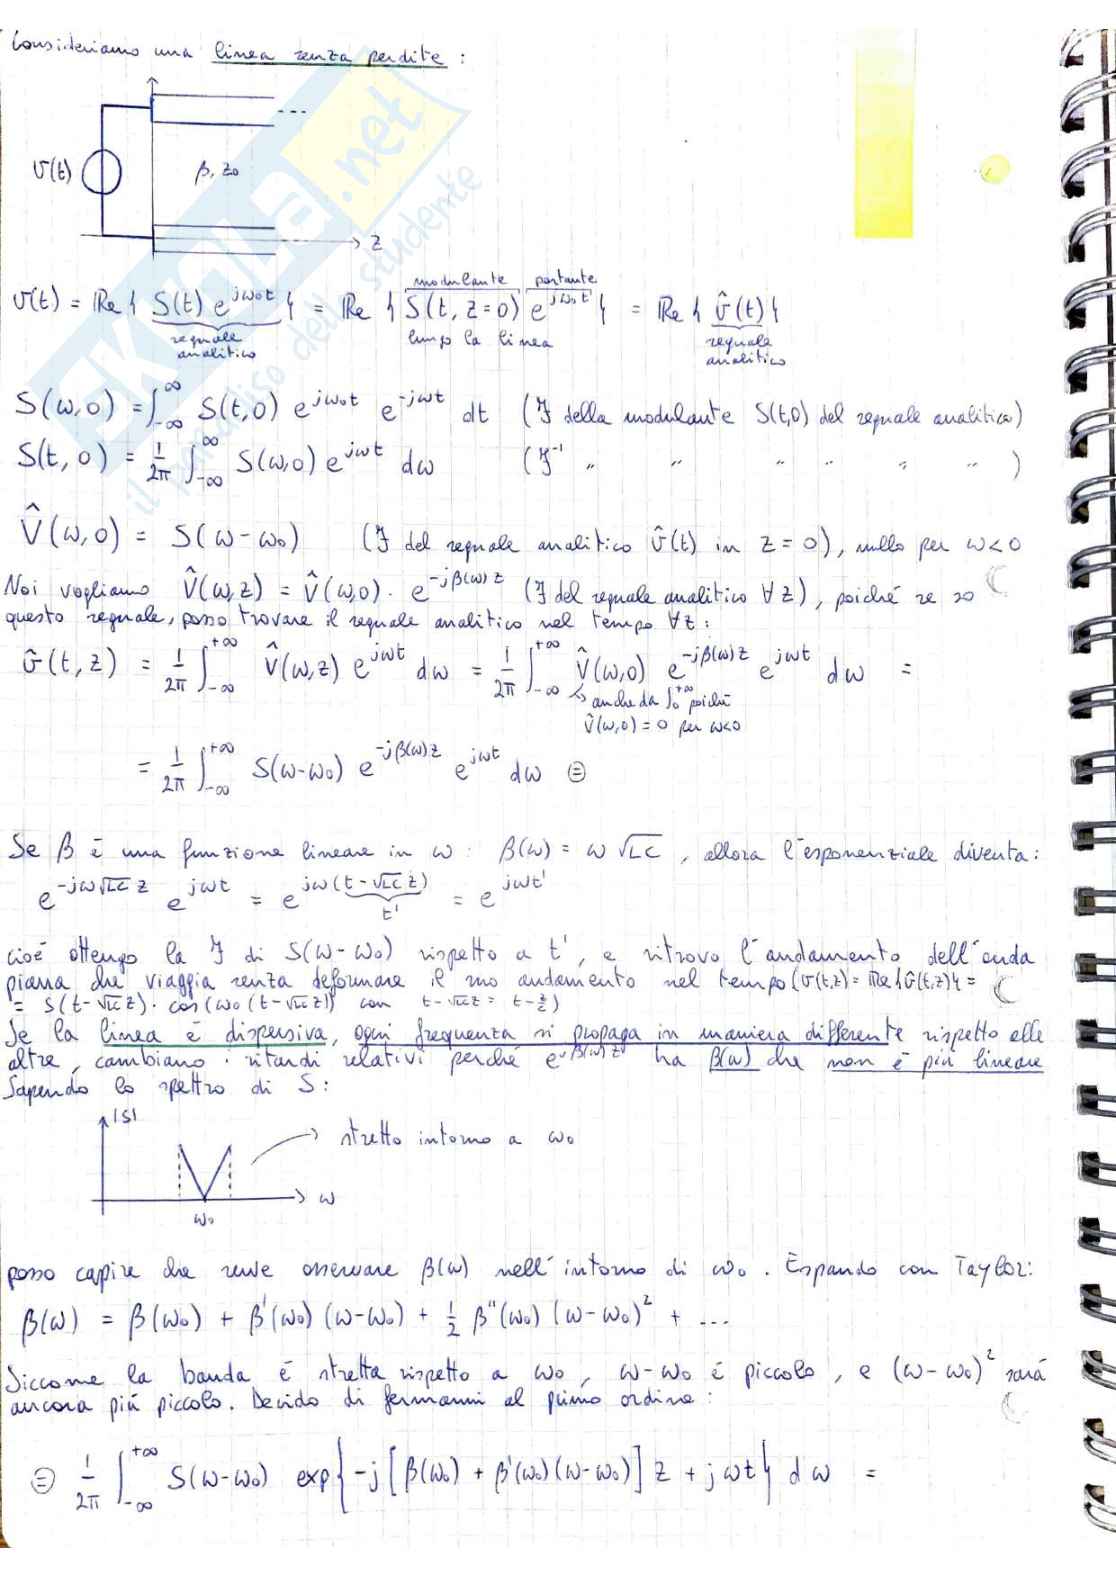 Consideriamo una linea senza perdite :
v(t)
β, Z₀
z
modulante portante
v(t) = Re{ S(t) e^{jω₀t} } = Re{ S(t, z=0) e^{jω₀t} } = Re{ v̂(t) }
segnale analitico
lungo la linea
segnale analitico
S(ω,0) = ∫_{-∞}^{∞} S(t,0) e^{jω₀t} e^{-jωt} dt (ℱ della modulante S(t,0) del segnale analitico)
S(t,0) = 1/2π ∫_{-∞}^{∞} S(ω,0) e^{jωt} dω (ℱ⁻¹ " " " " " ")
V̂(ω,0) = S(ω-ω₀) (ℱ del segnale analitico v̂(t) in z=0), nullo per ω<0
Noi vogliamo V̂(ω,z) = V̂(ω,0) · e^{-jβ(ω)z} (ℱ del segnale analitico ∀z), poiché se so
questo segnale, posso trovare il segnale analitico nel tempo ∀z :
v̂(t,z) = 1/2π ∫_{-∞}^{+∞} V̂(ω,z) e^{jωt} dω = 1/2π ∫_{-∞}^{+∞} V̂(ω,0) e^{-jβ(ω)z} e^{jωt} dω =
↳ anche da ∫_0^{+∞} poiché
V̂(ω,0) = 0 per ω<0
= 1/2π ∫_{-∞}^{+∞} S(ω-ω₀) e^{-jβ(ω)z} e^{jωt} dω ⊜
Se β è una funzione lineare in ω : β(ω) = ω √LC , allora l'esponenziale diventa :
e^{-jω√LC z} e^{jωt} = e^{jω(t-√LC z)} = e^{jωt'}
t'
cioè ottengo la ℱ di S(ω-ω₀) rispetto a t', e ritrovo l'andamento dell'onda
piana che viaggia senza deformare il suo andamento nel tempo (v(t,z) = Re{v̂(t,z)} =
= S(t-√LC z) · cos(ω₀(t-√LC z)) con t-√LC z = t-z/
Se la linea è dispersiva, ogni frequenza si propaga in maniera differente rispetto alle
altre, cambiano i ritardi relativi perché e^{-jβ(ω)z} ha β(ω) che non è più lineare
Sapendo lo spettro di S :
|S|
stretto intorno a ω₀
ω
ω₀
posso capire che serve osservare β(ω) nell'intorno di ω₀ . Espando con Taylor :
β(ω) = β(ω₀) + β'(ω₀) (ω-ω₀) + 1/2 β''(ω₀) (ω-ω₀)² + ...
Siccome la banda è stretta rispetto a ω₀ , ω-ω₀ è piccolo , e (ω-ω₀)² sará
ancora più piccolo. Decido di fermarmi al primo ordine :
⊜ 1/2π ∫_{-∞}^{+∞} S(ω-ω₀) exp{ -j [ β(ω₀) + β'(ω₀)(ω-ω₀) ] z + jωt } dω =
SKUOLA.net
il paradiso dello studente